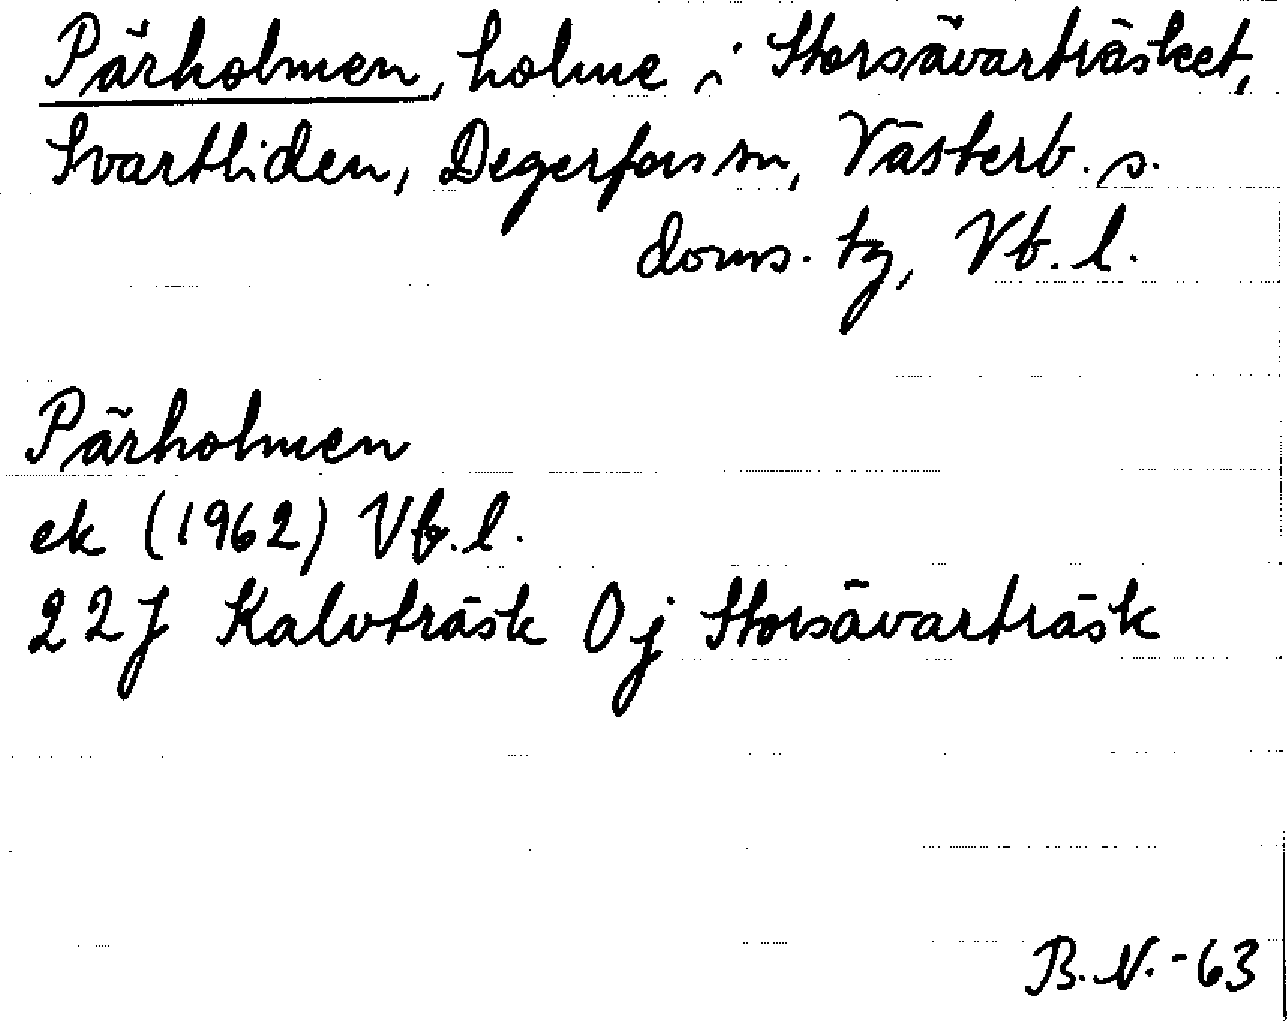 Pärholmen, holme i Storsävarträsket,
Svartliden, Degerfors sn, Västerb. s.
doms. tg, Vb. l.
Pärholmen
ek (1962) Vb. l.
22J Kalvträsk 0j Storsävarträsk
B.N. -63